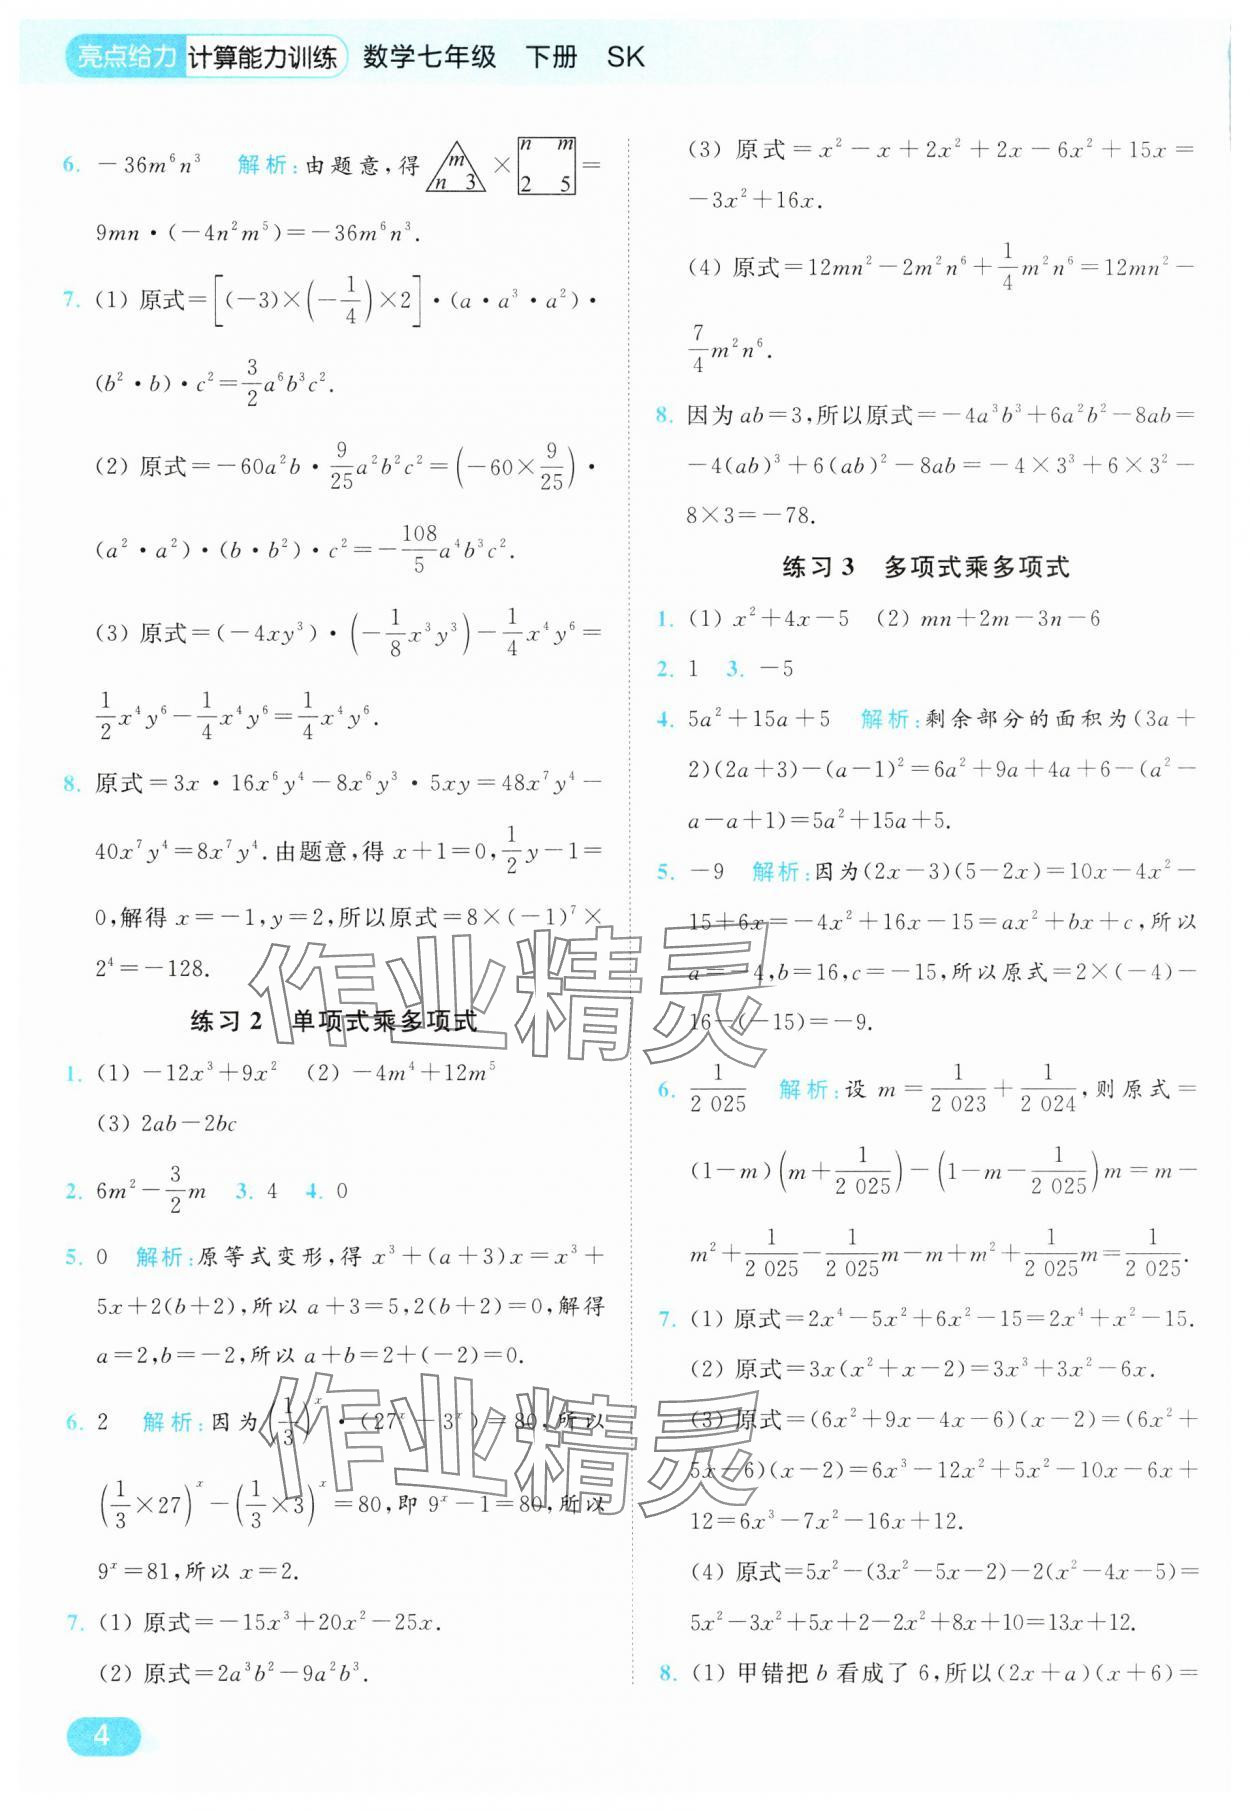 亮点给力 计算能力训练 数学七年级 下册 SK
6. －36m⁶n³ 解析:由题意,得 m n 3 × n m 2 5 ＝
9mn·(－4n²m⁵)＝－36m⁶n³.
7. (1) 原式＝[(－3)×(－1/4)×2]·(a·a³·a²)·
(b²·b)·c²＝3/2a⁶b³c².
(2) 原式＝－60a²b·9/25a²b²c²＝(－60×9/25)·
(a²·a²)·(b·b²)·c²＝－108/5a⁴b³c².
(3) 原式＝(－4xy³)·(－1/8x³y³)－1/4x⁴y⁶＝
1/2x⁴y⁶－1/4x⁴y⁶＝1/4x⁴y⁶.
8. 原式＝3x·16x⁶y⁴－8x⁶y³·5xy＝48x⁷y⁴－
40x⁷y⁴＝8x⁷y⁴.由题意,得 x＋1＝0,1/2y－1＝
0,解得 x＝－1,y＝2,所以原式＝8×(－1)⁷×
2⁴＝－128.
练习 2 单项式乘多项式
1. (1) －12x³＋9x² (2) －4m⁴＋12m⁵
(3) 2ab－2bc
2. 6m²－3/2m 3. 4 4. 0
5. 0 解析:原等式变形,得 x³＋(a＋3)x＝x³＋
5x＋2(b＋2),所以 a＋3＝5,2(b＋2)＝0,解得
a＝2,b＝－2,所以 a＋b＝2＋(－2)＝0.
6. 2 解析:因为(1/3)ˣ·(27ˣ－3ˣ)＝80,所以
(1/3×27)ˣ－(1/3×3)ˣ＝80,即 9ˣ－1＝80,所以
9ˣ＝81,所以 x＝2.
7. (1) 原式＝－15x³＋20x²－25x.
(2) 原式＝2a³b²－9a²b³.
4
(3) 原式＝x²－x＋2x²＋2x－6x²＋15x＝
－3x²＋16x.
(4) 原式＝12mn²－2m²n⁶＋1/4m²n⁶＝12mn²－
7/4m²n⁶.
8. 因为 ab＝3,所以原式＝－4a³b³＋6a²b²－8ab＝
－4(ab)³＋6(ab)²－8ab＝－4×3³＋6×3²－
8×3＝－78.
练习 3 多项式乘多项式
1. (1) x²＋4x－5 (2) mn＋2m－3n－6
2. 1 3. －5
4. 5a²＋15a＋5 解析:剩余部分的面积为(3a＋
2)(2a＋3)－(a－1)²＝6a²＋9a＋4a＋6－(a²－
a－a＋1)＝5a²＋15a＋5.
5. －9 解析:因为(2x－3)(5－2x)＝10x－4x²－
15＋6x＝－4x²＋16x－15＝ax²＋bx＋c,所以
a＝－4,b＝16,c＝－15,所以原式＝2×(－4)－
16－(－15)＝－9.
6. 1/2 025 解析:设 m＝1/2 023＋1/2 024,则原式＝
(1－m)(m＋1/2 025)－(1－m－1/2 025)m＝m－
m²＋1/2 025－1/2 025m－m＋m²＋1/2 025m＝1/2 025.
7. (1) 原式＝2x⁴－5x²＋6x²－15＝2x⁴＋x²－15.
(2) 原式＝3x(x²＋x－2)＝3x³＋3x²－6x.
(3) 原式＝(6x²＋9x－4x－6)(x－2)＝(6x²＋
5x－6)(x－2)＝6x³－12x²＋5x²－10x－6x＋
12＝6x³－7x²－16x＋12.
(4) 原式＝5x²－(3x²－5x－2)－2(x²－4x－5)＝
5x²－3x²＋5x＋2－2x²＋8x＋10＝13x＋12.
8. (1) 甲错把 b 看成了 6,所以(2x＋a)(x＋6)＝
作业精灵
作业精灵